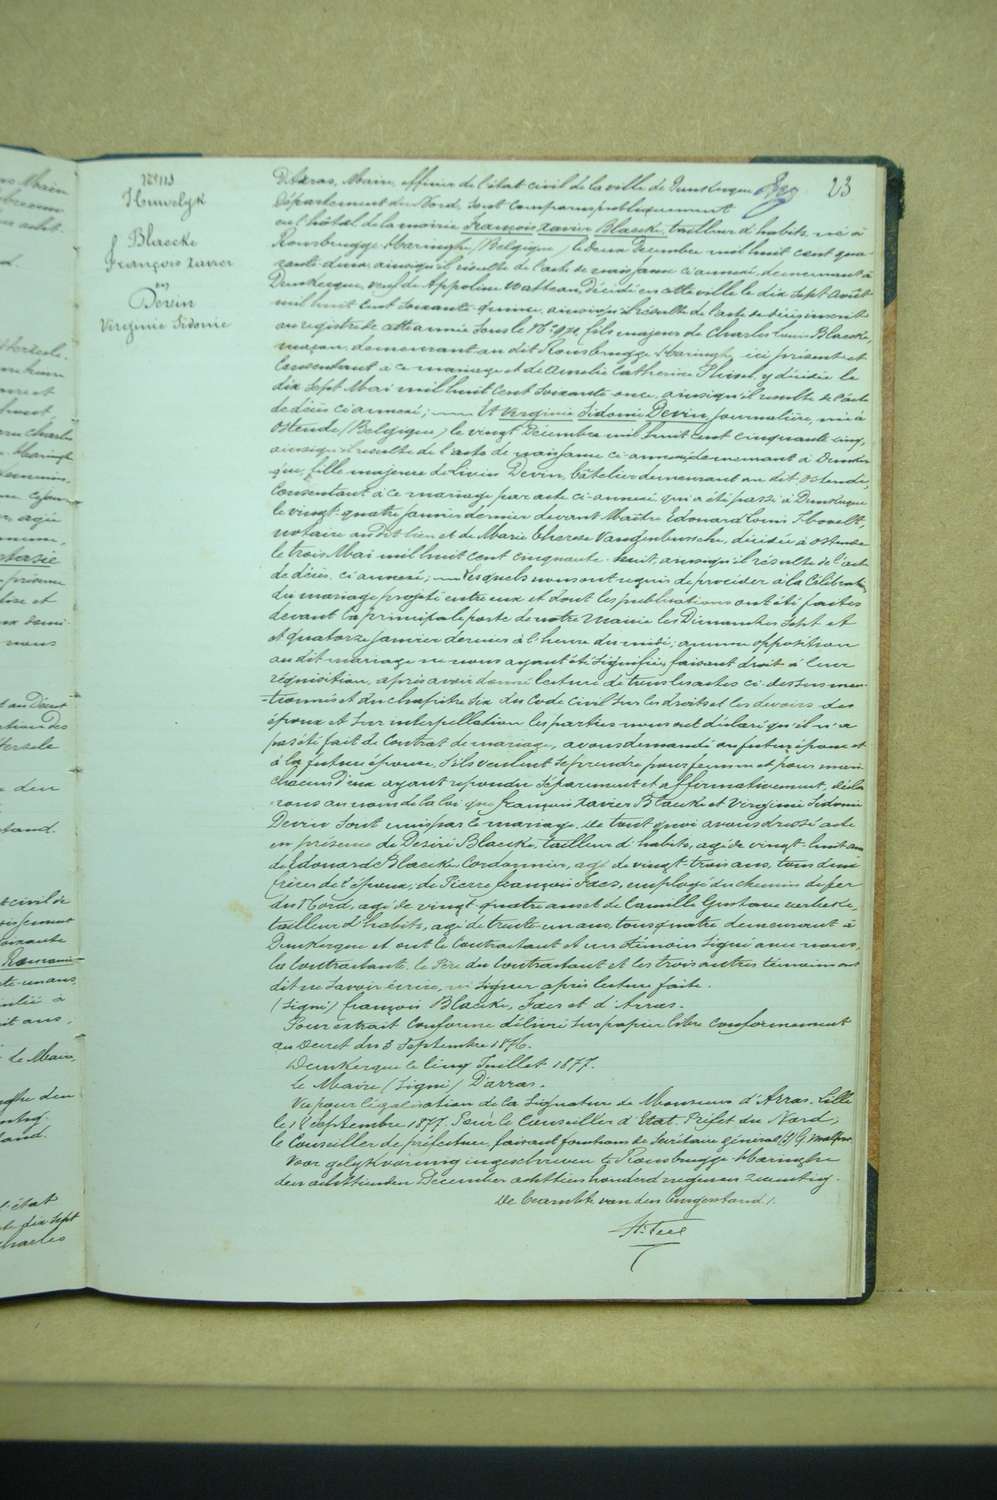 23
N° 113
Huwelyk
Blaecke
François Xavier
en
Devin
Virginie Sidonie
D'Arras, Maire, officier de l'état civil de la ville de Dunkerque
Département du Nord, sont comparus publiquement
en l'hôtel de la mairie François Xavier Blaecke, tailleur d'habits, né à
Rousbrugge-Haringhe (Belgique) le deux Décembre mil huit cent qua-
rante-deux, ainsi qu'il résulte de l'acte de naissance ci-annexé, demeurant à
Dunkerque, veuf de Appoline Watteau, décédée en cette ville le dix sept Août
mil huit cent soixante quinze, ainsi qu'il résulte de l'acte de décès inscrit
au registre de cette année sous le N° 792, fils majeur de Charles Louis Blaecke,
maçon, demeurant au dit Rousbrugge-Haringhe, ici présent et
Consentant à ce mariage et de Amélie Catherine y décédée le
dix sept Mai mil huit cent soixante onze, ainsi qu'il résulte de l'acte
de décès ci annexé; Et Virginie Sidonie Devin, journalière, née à
Ostende (Belgique) le vingt Décembre mil huit cent cinquante cinq,
ainsi qu'il résulte de l'acte de naissance ci-annexé, demeurant à Dunker-
que, fille majeure de Livin Devin, bâtelier demeurant au dit Ostende,
Consentant à ce mariage par acte ci-annexé qui a été passé à Dunkerque
le vingt-quatre janvier dernier devant Maître Edouard Louis
notaire au dit lieu et de Marie Thérèse Vangenbussche, décédée à Ostende
le trois Mai mil huit cent cinquante-huit, ainsi qu'il résulte de l'acte
de décès, ci annexé; Lesquels nous ont requis de procéder à la Célébration
du mariage projeté entre eux et dont les publications ont été faites
devant la principale porte de notre Mairie les Dimanches sept et
et quatorze janvier dernier à l'heure du midi; aucune opposition
au dit mariage ne nous ayant été signifiée, faisant droit à leur
réquisition, après avoir donné lecture de tous les actes ci-dessus men-
-tionnés et du chapitre six du Code Civil sur les droits et les devoirs des
époux et sur interpellation les parties nous ont déclaré qu'il n'a
pas été fait de Contrat de mariage, avons demandé au futur époux et
à la future épouse, s'ils veulent se prendre pour femme et pour mari
chacun d'eux ayant répondu séparément et affirmativement, décla-
rons au nom de la loi que François Xavier Blaecke et Virginie Sidonie
Devin sont unis par le mariage. De tout quoi avons dressé acte
en présence de Désiré Blaecke, tailleur d'habits, agé de vingt-huit ans
de Edouard Blaecke, Cordonnier, agé de vingt-trois ans, tous deux
frères de l'époux, de Pierre François Faes, employé du chemin de fer
du Nord, agé de vingt quatre ans et de Camille Gustave Verbeke,
tailleur d'habits, agé de trente-un ans, tous quatre demeurant à
Dunkerque et ont le Contractant et un témoin signé avec nous,
la contractante, le Père du Contractant et les trois autres témoins ont
dit ne savoir écrire, ni signer après lecture faite.
(Signé) François Blaecke, Faes et d'Arras.
Pour extrait conforme délivré sur papier libre conformément
au Décret du 3 Septembre 1876.
Dunkerque le cinq Juillet 1877.
Le Maire (Signé) Darras.
Vu pour légalisation de la signature de Monsieur d'Arras. Lille
le 12 Septembre 1877. Pour le Conseiller d'Etat. Préfet du Nord,
le Conseiller de préfecture, faisant fonctions de Secrétaire général
Voor gelykvormig ingeschreven te Rousbrugge-Haringhe
den achttienden December achttien honderd negen en zeventig.
De Beambte van den burgerstand.